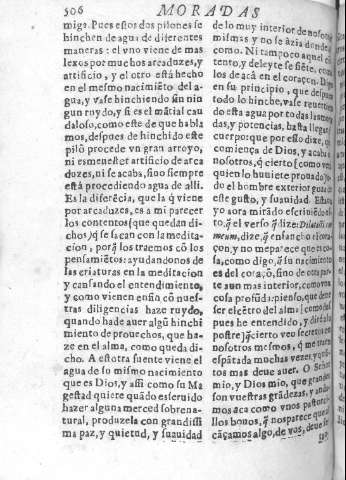 506 MORADAS
miga. Pues estos dos pilones se
hinchen de agua de diferentes
maneras: el vno viene de mas
lexos por muchos arcaduzes, y
artificio, y el otro està hecho
en el mesmo nacimiẽto del a-
gua, y vase hinchiendo sin nin
gun ruydo, y si es el mãtial cau
daloso, como este de que habla
mos, despues de hinchido este
pilõ procede vn gran arroyo,
ni es menester artificio de arca
duzes, ni se acaba, sino siempre
està procediendo agua de alli.
Es la diferẽcia, que la q̃ viene
por arcaduzes, es a mi parecer
los contentos (que quedan di-
chos) q̃ se sacan con la medita-
cion, porq̃ los traemos cõ los
pensamiẽtos: ayudandonos de
las criaturas en la meditacion
y cansando el entendimiento,
y como vienen enfin cõ nues-
tras diligencias haze ruydo,
quando ha de auer algũ hinchi
miento de prouechos, que ha-
ze en el alma, como queda di-
cho. A estotra fuente viene el
agua de su mismo nacimiento
que es Dios, y assi como su Ma
gestad quiere quãdo es seruido
hazer alguna merced sobrena-
tural, produzela con grandissi
ma paz, y quietud, y suauidad
de lo muy interior de nosotros
mismas y no se àzia donde, ni
como. Ni tampoco aquel cõ-
tento, y deleyte se siẽte, como
los de acà en el coraçon. Digo
en su principio, que despues
todo lo hinche, vase reuertiẽdo
esta agua por todas las moradas,
y potencias, hasta llegar al
cuerpo: que por esso dixe, q̃
comiença de Dios, y acaba en
nosotros, q̃ cierto (como verà
quien lo huuiete prouado) to-
do el hombre exterior goza de
este gusto, y suauidad. Estaua
yo aora mirãdo escriuiẽdo es-
to, q̃ el verso q̃ dize: Dilatasti cor
meum, dize, q̃ ensancho el cora-
çon, y no me parece que es co-
sa, como digo, q̃ su nacimiẽto
es del coraçõ, sino de otra par-
te aun mas interior, como vna
cosa profũda: pienso, que deue
ser el cẽtro del alma (como des
pues he entendido, y dirè a la
postre) q̃ cierto veo secretos en
nosotros mesmos, q̃ me traen
espãtada muchas vezes, y quã-
tos mas deue auer. O Señor
mio, y Dios mio, que grandes
son vuestras grãdezas, y anda-
mos acà como vnos pastorci-
llos bouos, q̃ nos parece que al-
cãçamos algo, de vos, deue se